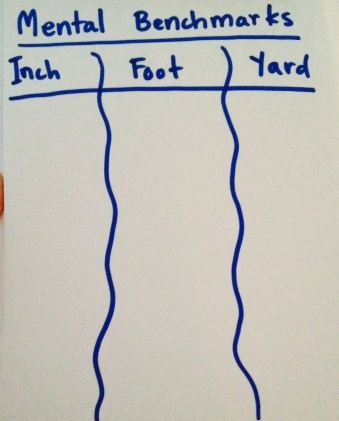 Mental Benchmarks
Inch Foot Yard